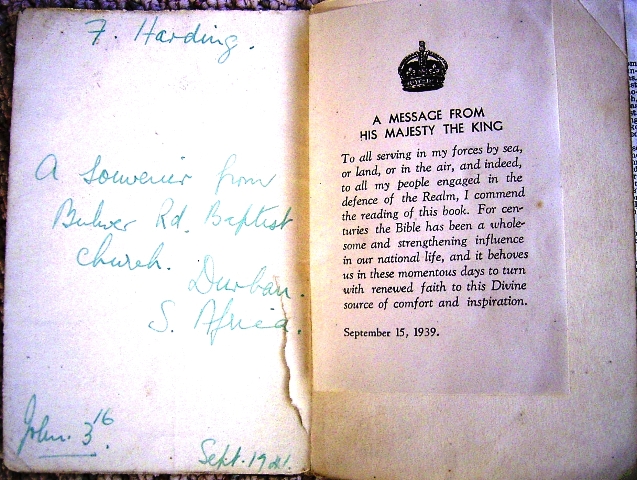 F. Harding.
A souvenir from
Bulwer Rd. Baptist
Church.
Durban.
S. Africa.
John. 3 16.
Sept. 1941.
A MESSAGE FROM
HIS MAJESTY THE KING
To all serving in my forces by sea,
or land, or in the air, and indeed,
to all my people engaged in the
defence of the Realm, I commend
the reading of this book. For cen-
turies the Bible has been a whole-
some and strengthening influence
in our national life, and it behoves
us in these momentous days to turn
with renewed faith to this Divine
source of comfort and inspiration.
September 15, 1939.